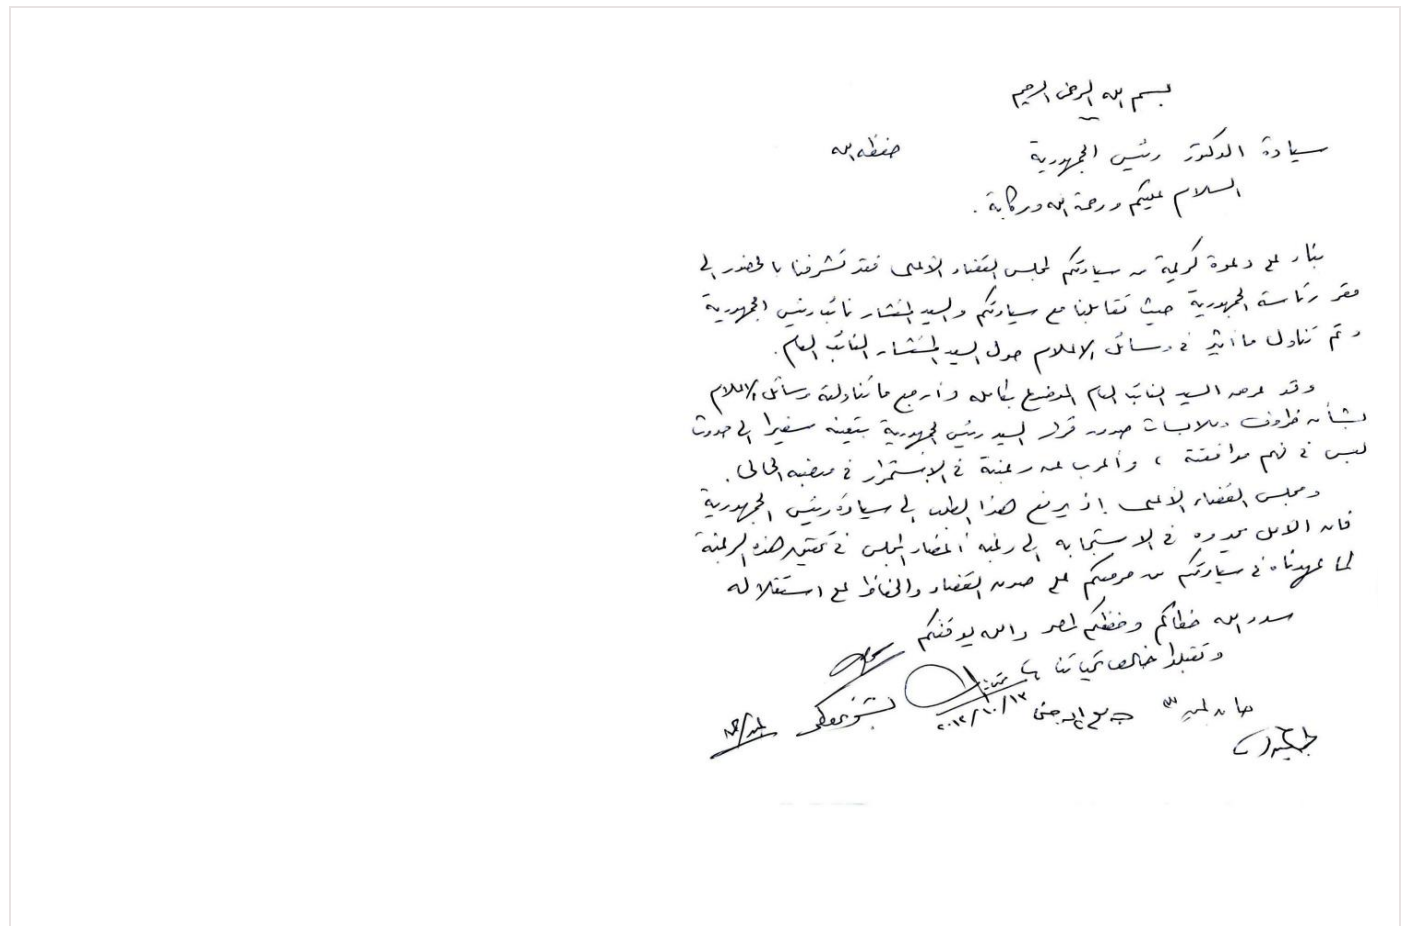 بسم الله الرحمن الرحيم
سيادة الدكتور رئيس الجمهورية حفظه الله
السلام عليكم ورحمة الله وبركاته .
بناء على دعوة كريمة من سيادتكم لمجلس القضاء الأعلى فقد تشرفنا بالحضور إلى
مقر رئاسة الجمهورية حيث تقابلنا مع سيادتكم والسيد المستشار نائب رئيس الجمهورية
وتم تناول ما أثير فى وسائل الاعلام حول السيد المستشار النائب العام .
وقد عرض السيد النائب العام الموضوع بكامله وأرجع ما تناولته وسائل الاعلام
بشأن ظروف وملابسات صدور قرار السيد رئيس الجمهورية بتعينه سفيرا إلى حدوث
لبس فى فهم موافقته ، وأعرب عن رغبته فى الاستمرار فى منصبه الحالى .
ومجلس القضاء الأعلى إذ يرفع هذا الطلب إلى سيادة رئيس الجمهورية
فان الامل يحدوه فى الاستجابه إلى رغبه أعضاء المجلس فى تحقيق هذه الرغبة
لما عهدناه فى سيادتكم من حرصكم على صون القضاء والحفاظ على استقلاله
سدد الله خطاكم وحفظكم لمصر والله يوفقكم
وتقبلوا خالص تحياتنا
٢٠١٢/١٠/١٣